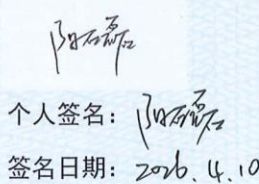 阳磊
个人签名：阳磊
签名日期：2026.4.10